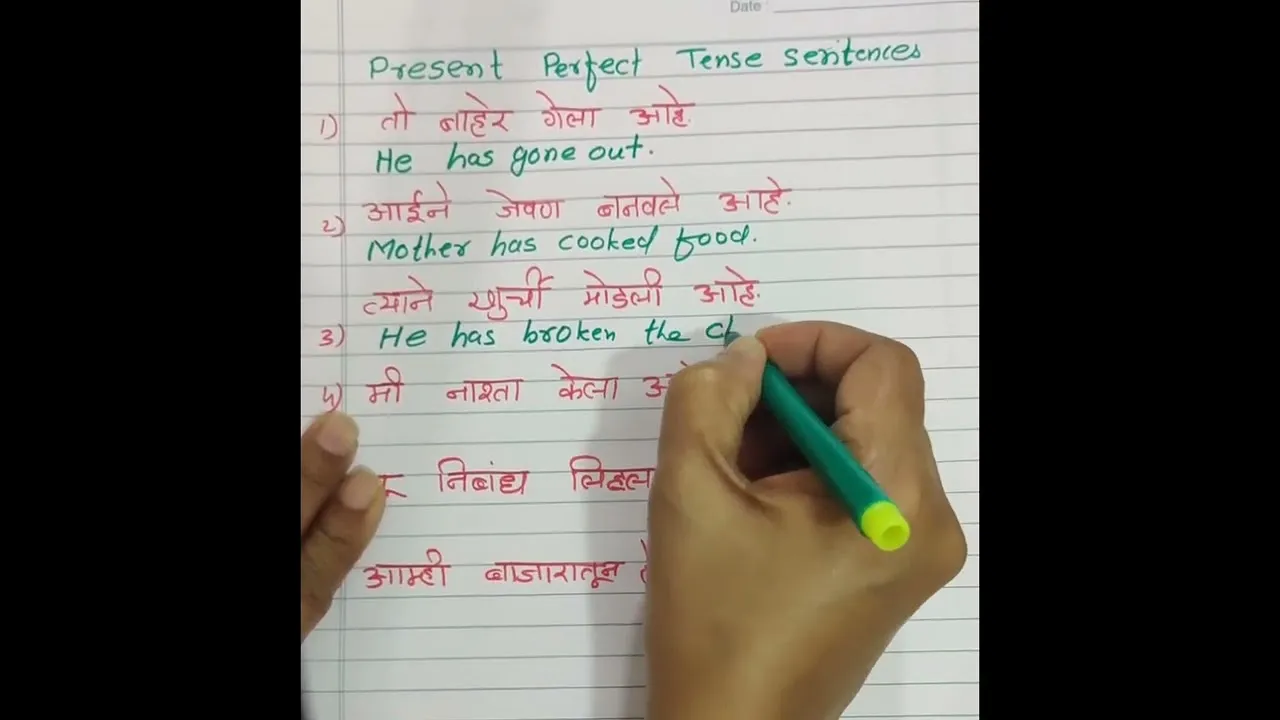 Date
Present Perfect Tense sentences
1) तो बाहेर गेला आहे.
He has gone out.
2) आईने जेवण बनवले आहे.
Mother has cooked food.
त्याने खुर्ची मोडली आहे.
3) He has broken the ch
4) मी नाश्ता केला
निबंध
आम्ही बाजारातून